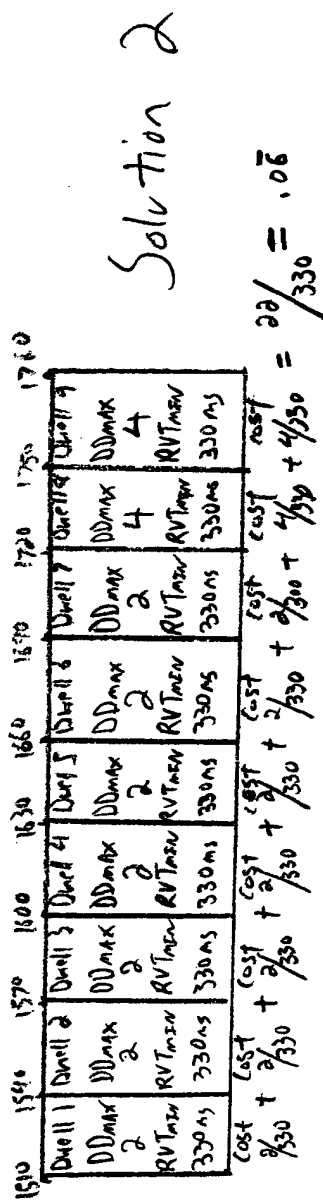 Solution 2
1510 1540 1570 1600 1630 1660 1690 1720 1750 1760
Dwell 1 Dwell 2 Dwell 3 Dwell 4 Dwell 5 Dwell 6 Dwell 7 Dwell 8 Dwell 9
DDMAX DDMAX DDMAX DDMAX DDMAX DDMAX DDMAX DDMAX DDMAX
2 2 2 2 2 2 2 4 4
RVTMIN RVTMIN RVTMIN RVTMIN RVTMIN RVTMIN RVTMIN RVTMIN RVTMIN
330ms 330ms 330ms 330ms 330ms 330ms 330ms 330ms 330ms
cost cost cost cost cost cost cost cost cost
2/330 + 2/330 + 2/330 + 2/330 + 2/330 + 2/330 + 2/300 + 4/330 + 4/330 = 22/330 = .06̄